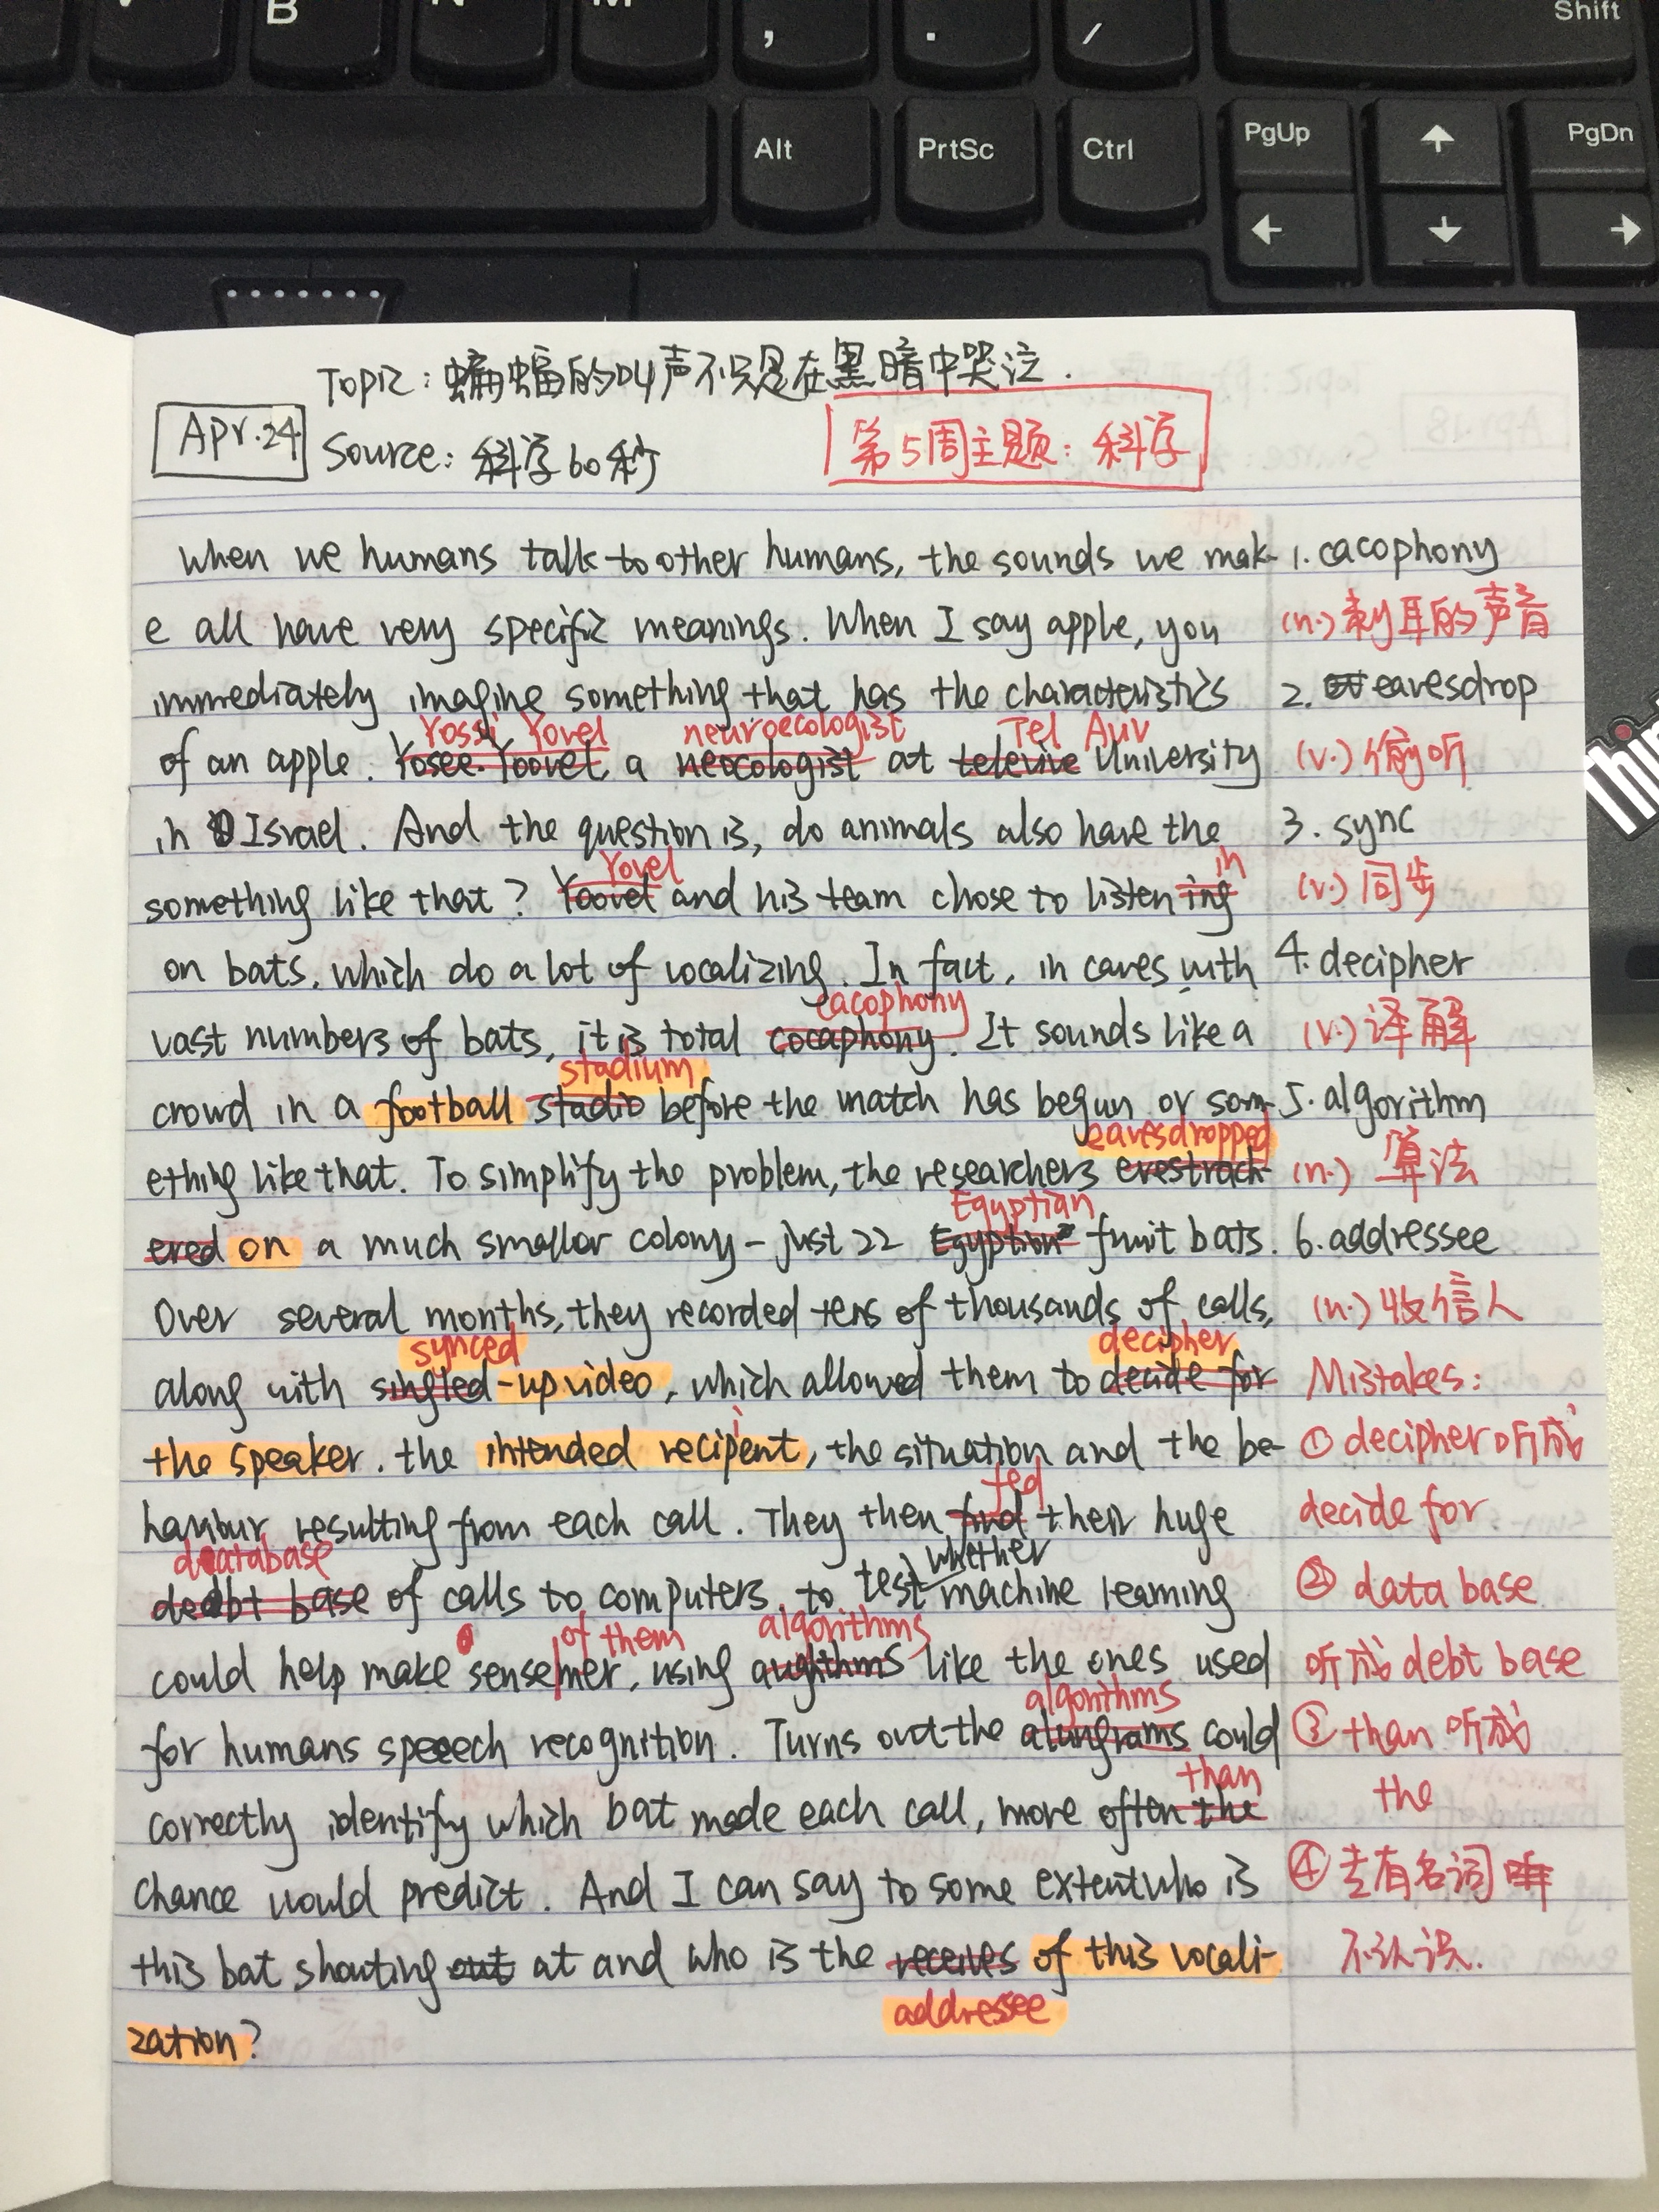 B N M , . / Shift
Alt PrtSc Ctrl PgUp ↑ PgDn
← ↓ →
Thin
Topic: 蝙蝠的叫声不只是在黑暗中哭泣.
Apr.24
Source: 科学60秒
第5周主题: 科学
When we humans talk to other humans, the sounds we mak-
e all have very specific meanings. When I say apple, you
immediately imagine something that has the characteristics
Yossi Yovel neuroecologist Tel Aviv
of an apple. Yosee Yoovel, a neocologist at televive University
in Israel. And the question is, do animals also have the
Yovel in
something like that? Yoovel and his team chose to listen ing
on bats, which do a lot of vocalizing. In fact, in caves with
cacophony
vast numbers of bats, it is total cocaphony. It sounds like a
stadium
crowd in a football stadio before the match has begun or som-
eavesdropped
ething like that. To simplify the problem, the researchers evestrach-
Egyptian
ered on a much smaller colony - just 22 Egyption fruit bats.
Over several months, they recorded tens of thousands of calls,
synced decipher
along with singled-up video, which allowed them to decide for
the speaker. the intended recipient, the situation and the be-
fed
haviour resulting from each call. They then find their huge
database whether
debt base of calls to computers, to test machine learning
of them algorithms
could help make sense mer, using aughthms like the ones used
algorithms
for humans speech recognition. Turns out the alungrams could
than
correctly identify which bat made each call, more often the
chance would predict. And I can say to some extent who is
this bat shouting out at and who is the receives of this vocali-
addressee
zation?
1. cacophony
(n.) 刺耳的声音
2. eavesdrop
(v.) 偷听
3. sync
(v.) 同步
4. decipher
(v.) 译解
5. algorithm
(n.) 算法
6. addressee
(n.) 收信人
Mistakes:
① decipher 听成
decide for
② data base
听成 debt base
③ than 听成
the
④ 专有名词
不认识.